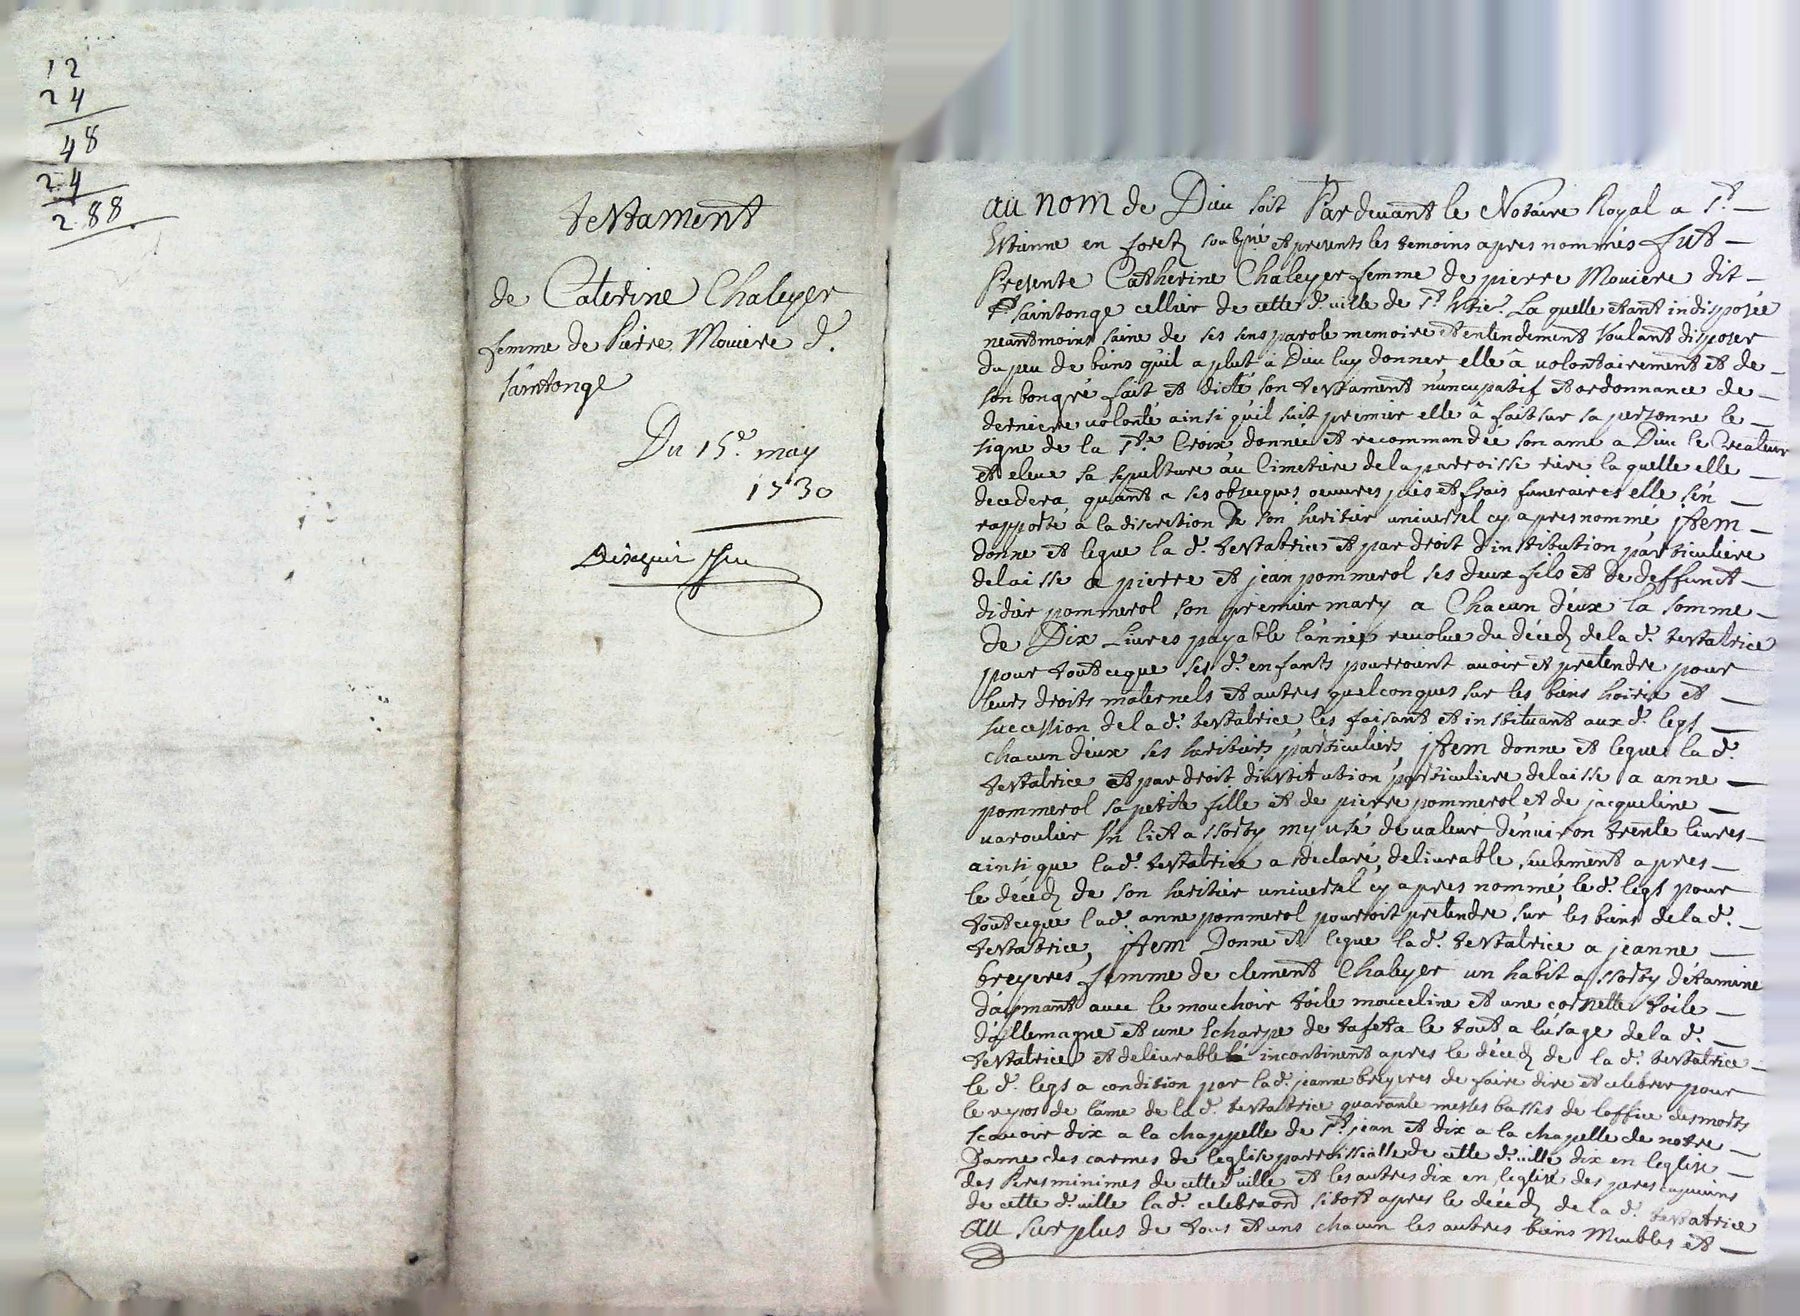 12
24
48
24
288
testament
de Caterine Chaleyer
femme de Pierre Mouiere d.
saintonge
Du 15e. may
1730
au nom de Dieu soit Pardeuant le Notaire Royal a St.
Etienne en forest soubsné et presents les temoins apres nommés fut
Presente Catherine Chaleyer femme de pierre Mouiere dit
St saintonge cellier de cette d. ville de St. Etie. La quelle etant indisposée
neantmoins saine de ses sens parole memoire et entendement Voulant disposer
du peu de biens qu'il a plut à Dieu luy donner elle â volontairement et de
son bon gré fait et dicté son testament nuncupatif et ordonnance de
derniere volonté ainsi qu'il suit premier elle â fait sur sa personne le
signe de la Ste. Croix donnée et recommandée son ame a Dieu le Createur
et eleue sa sepulture au Cimetiere de la parroisse riere la quelle elle
decedera quant a ses obseques oeuvres pies et frais funeraires elle s'en
rapporte a la discretion de son heritier universel cy apres nommé jtem
donne et legue la d. testatrice et par droit d'institution particuliere
delaisse a pierre et jean pommerol ses deux fils et de deffunct
didier pommerol son premier mary a Chacun d'eux la somme
de Dix Livres payable l'année revolue du décedz de la d. testatrice
pour tout ce que ses d. enfants pourroient auoir et pretendre pour
leurs droits maternels et autres quelconques sur les biens hoirie et
succession de la d. testatrice les faisant et instituant aux d. legs
chacun d'eux ses heritiers particuliers, jtem donne et legue la d.
testatrice et par droit d'institution particuliere delaisse a anne
pommerol sa petite fille et de pierre pommerol et de jacqueline
varoulier Vn lict assorty my usé de valeur d'enuiron trente liures
ainsi que la d. testatrice a declaré, deliurable seulement apres
le décedz de son heritier universel cy apres nommé, le d. legs pour
tout ce que la d. anne pommerol pourroit pretendre sur les biens de la d.
testatrice, jtem Donne et legue la d. testatrice a jeanne
breyeres femme de clement Chaleyer un habit assorty d'etamine
avec le mouchoir toile mouceline et une cornette toile
d'allemagne et une Echarpe de tafeta le tout a l'usage de la d.
testatrice et deliurable incontinent apres le décedz de la d. testatrice
le d. legs a condition par la d. jeanne breyeres de faire dire et celebrer pour
le repos de l'ame de la d. testatrice quarante messes basses de l'office des morts
scauoir dix a la chappelle de St. jean et dix a la chapelle de notre
Dame des carmes de l'eglise parroissialle de cette d. ville dix en l'eglise
des Peres minimes de cette ville et les autres dix en l'eglise des peres capucins
de cette d. ville la d. sitost apres le décedz de la d. testatrice
au surplus de tous et uns chacun les autres biens Meubles et